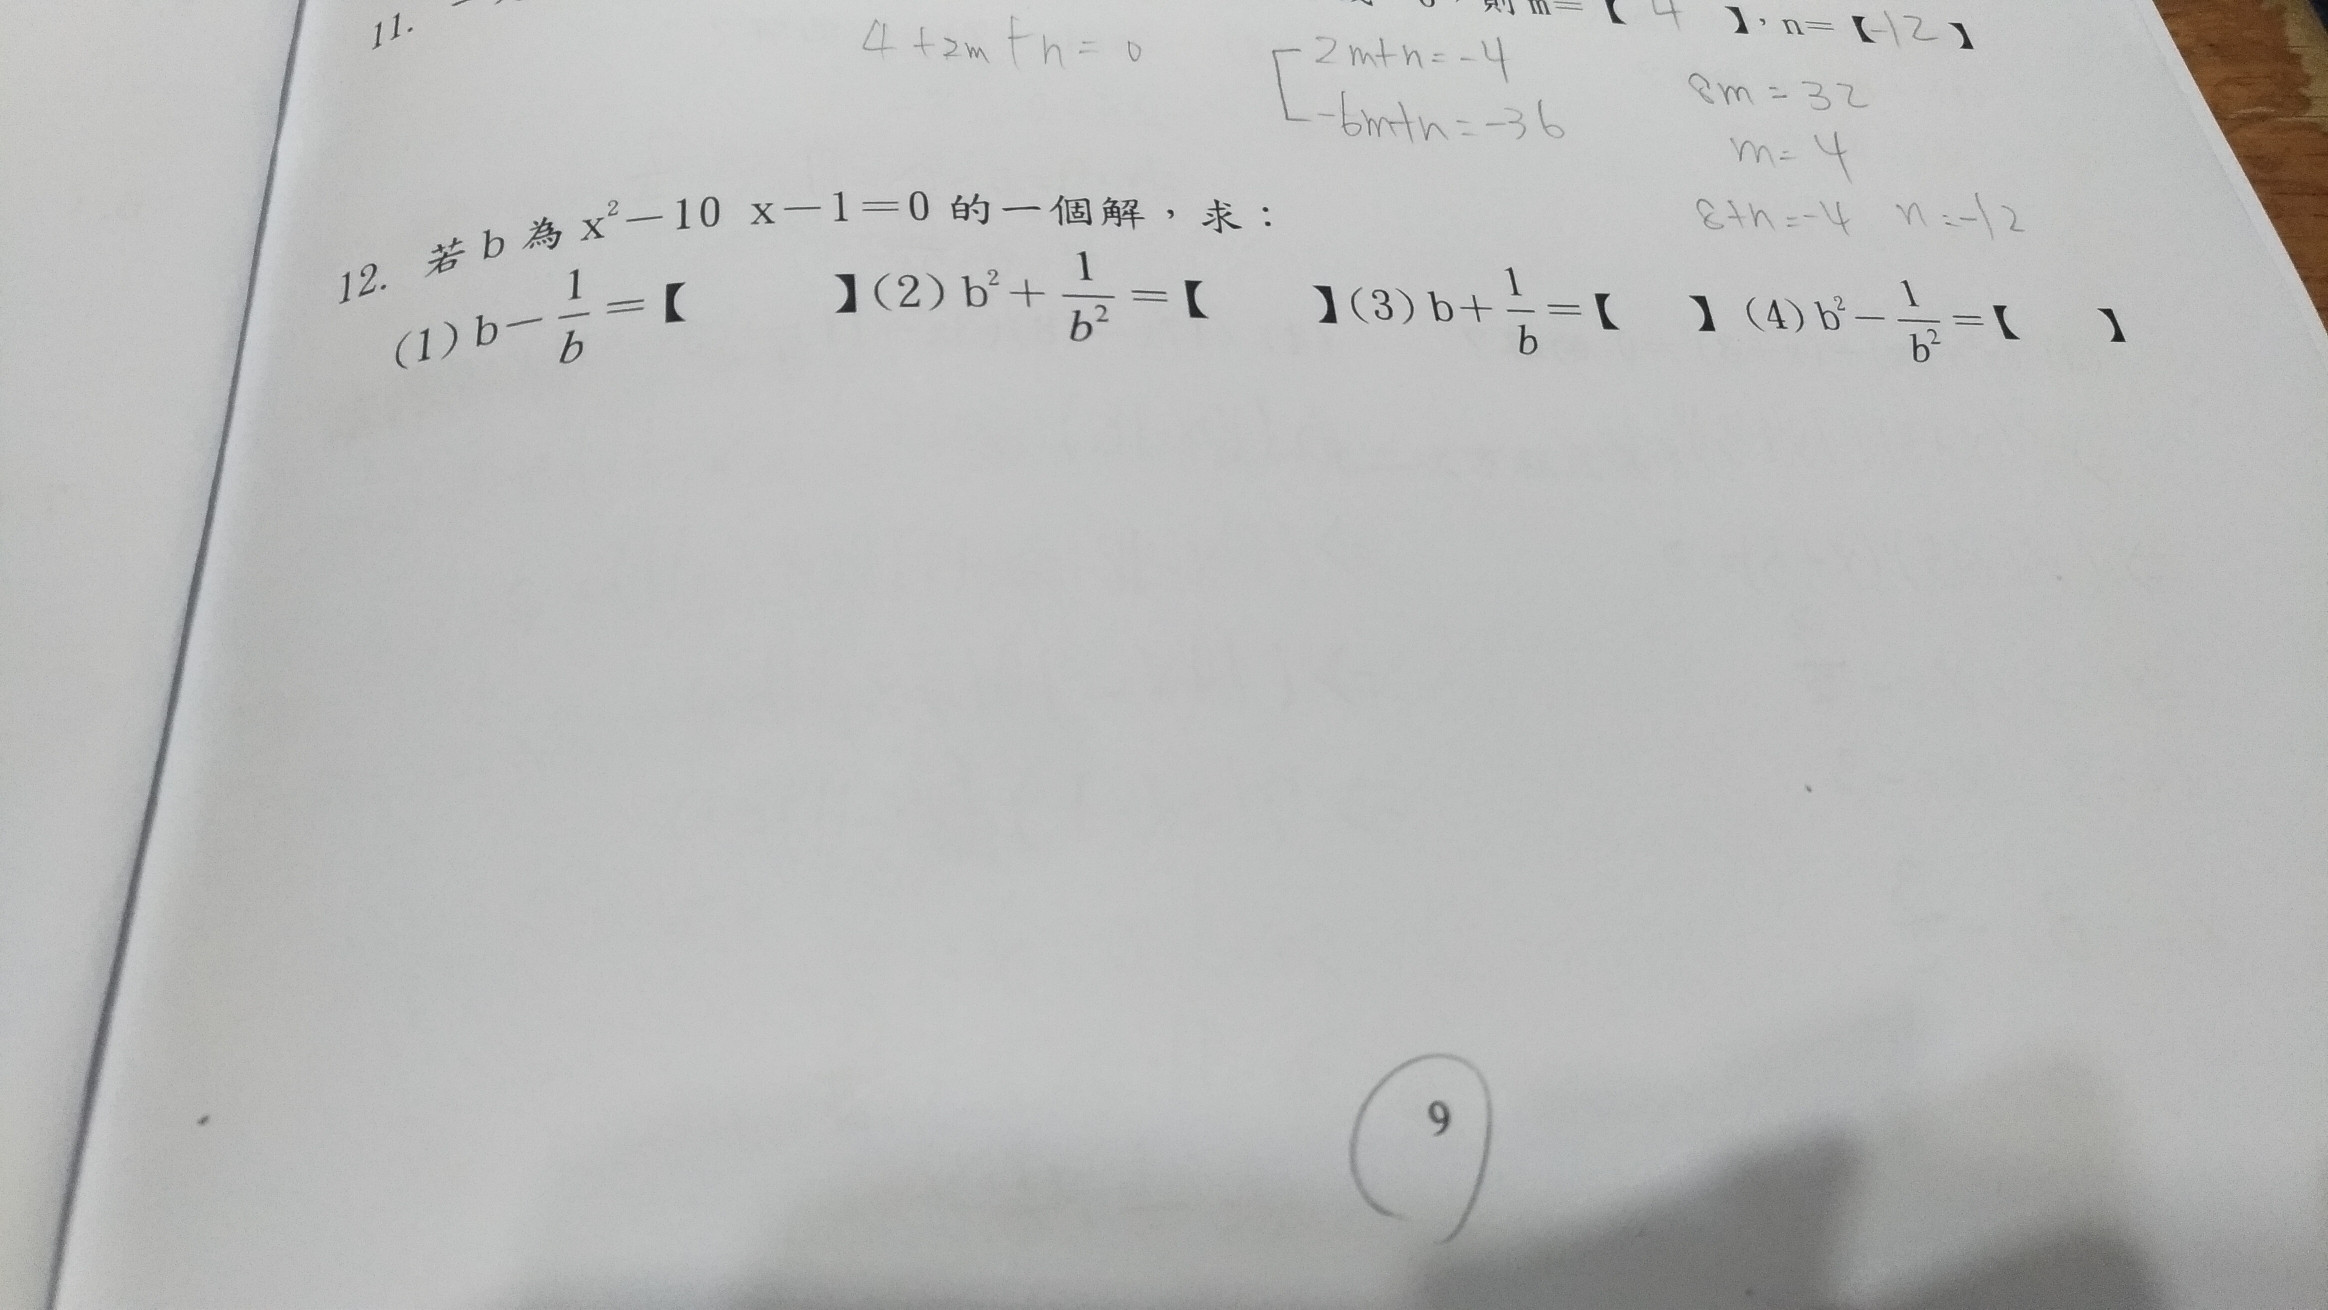 11.
則 m=【 4 】，n=【-12】
4+2m+n=0
2m+n=-4
-6m+n=-36
8m=32
m=4
8+n=-4 n=-12
12. 若 b 為 x²－10 x－1＝0 的一個解，求：
(1) b－1/b＝【 】(2) b²＋1/b²＝【 】(3) b＋1/b＝【 】(4) b²－1/b²＝【 】
9